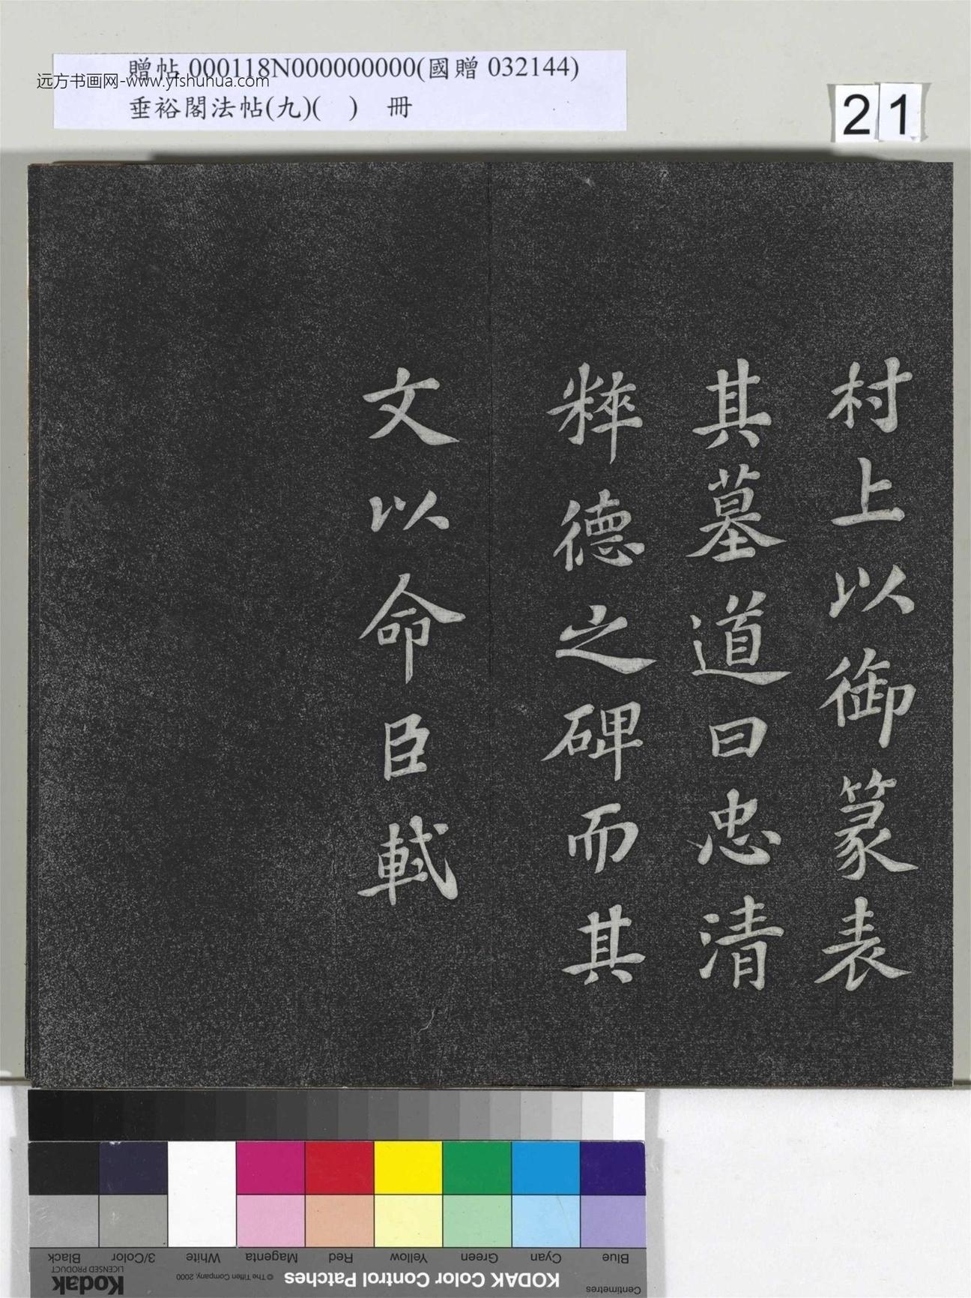 贈帖 000118N000000000(國贈 032144)
远方书画网-www.yishuhua.com
垂裕閣法帖(九)( ) 冊
21
村上以御篆表
其墓道曰忠清
粹德之碑而其
文以命臣軾
Black
3/Color
White
Magenta
Red
Yellow
Green
Cyan
Blue
Kodak
LICENSED PRODUCT
© The Tiffen Company, 2000
KODAK Color Control Patches
Centimetres